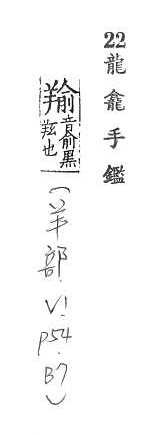 22龍龕手鑑
羭音俞黑羖也
(羊部.V1.p54.B7)